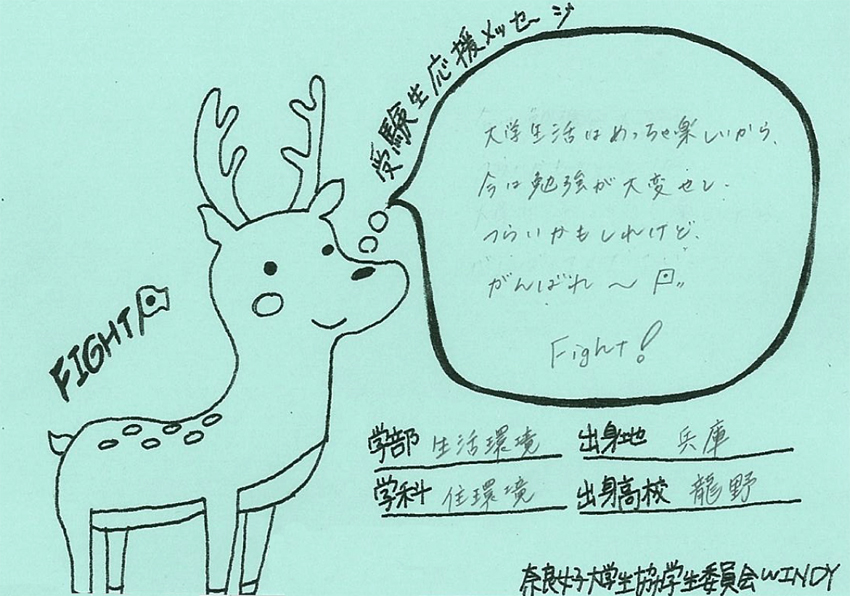 受験生応援メッセージ
大学生活はめっちゃ楽しいから、
今は勉強が大変やし、
つらいかもしれけど、
がんばれ〜
Fight!
FIGHT
学部 生活環境
出身地 兵庫
学科 住環境
出身高校 龍野
奈良女子大学生協学生委員会WINDY